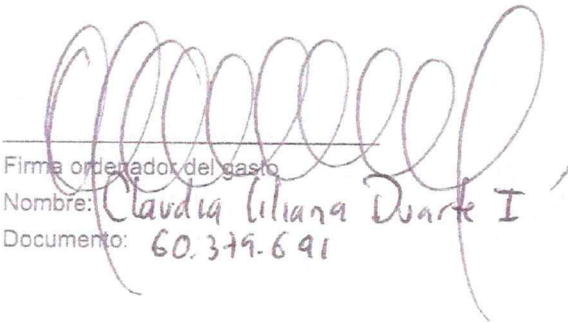 Firma ordenador del gasto
Nombre: Claudia Liliana Duarte I
Documento: 60.379.691